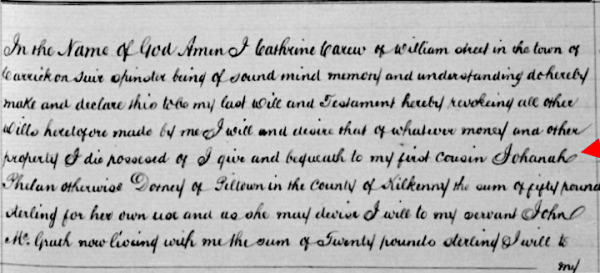 In the Name of God Amen I Cathrine Carew of William street in the town of
Carrick on Suir spinster being of sound mind memory and understanding do hereby
make and declare this to be my last Will and Testament hereby revokeing all other
Wills heretofore made by me I will and desire that of whatever money and other
property I die possesed of I give and bequeath to my first cousin Johanah
Phelan otherwise Dorney of Piltown in the County of Kilkenny the sum of fifty pound
sterling for her own use and as she may devise I will to my servant John
Mc. Grath now liveing with me the sum of Twenty pounds sterling I will to
my